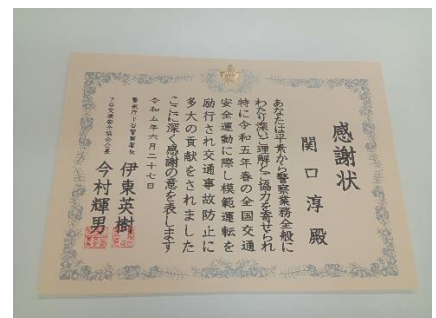 感謝状
関口淳殿
あなたは平素から警察業務全般に
わたり深いご理解とご協力を寄せられ
特に令和五年春の全国交通
安全運動に際し模範運転を
励行され交通事故防止に
多大の貢献をされました
ここに深く感謝の意を表します
令和五年六月二十七日
警視庁下谷警察署長
伊東英樹
下谷交通安全協会会長
今村輝男